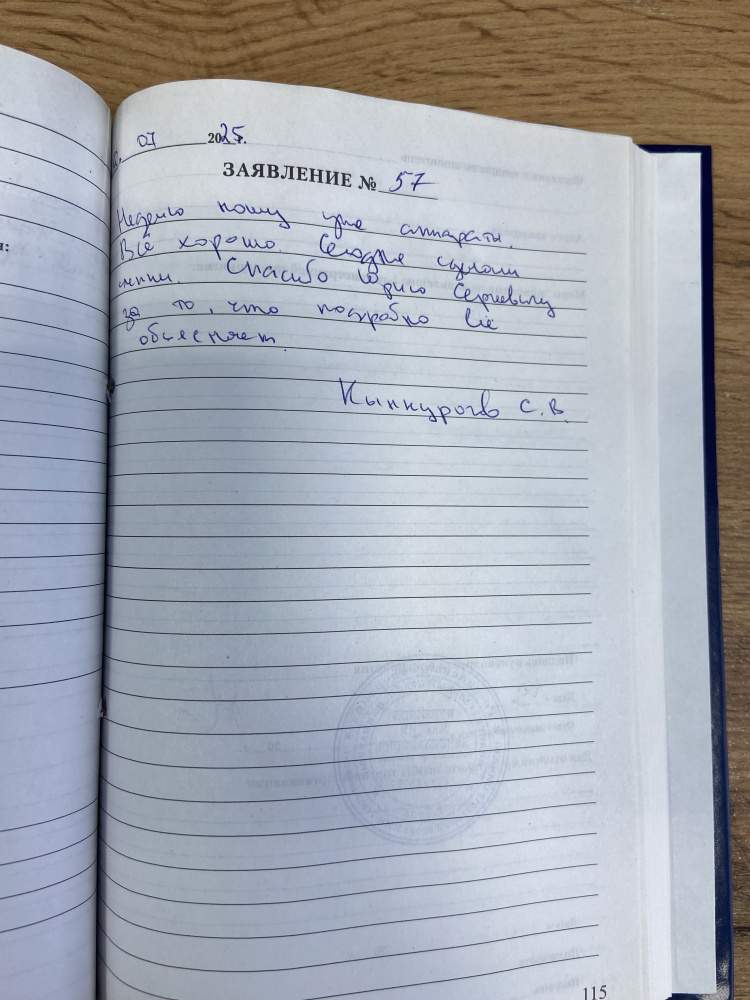 07 2025г.
ЗАЯВЛЕНИЕ № 57
Неделю ношу уже аппараты.
Всё хорошо. Сегодня сделали
Спасибо Юрию Сергеевичу
за то, что подробно всё
объясняет.
С. В.
115